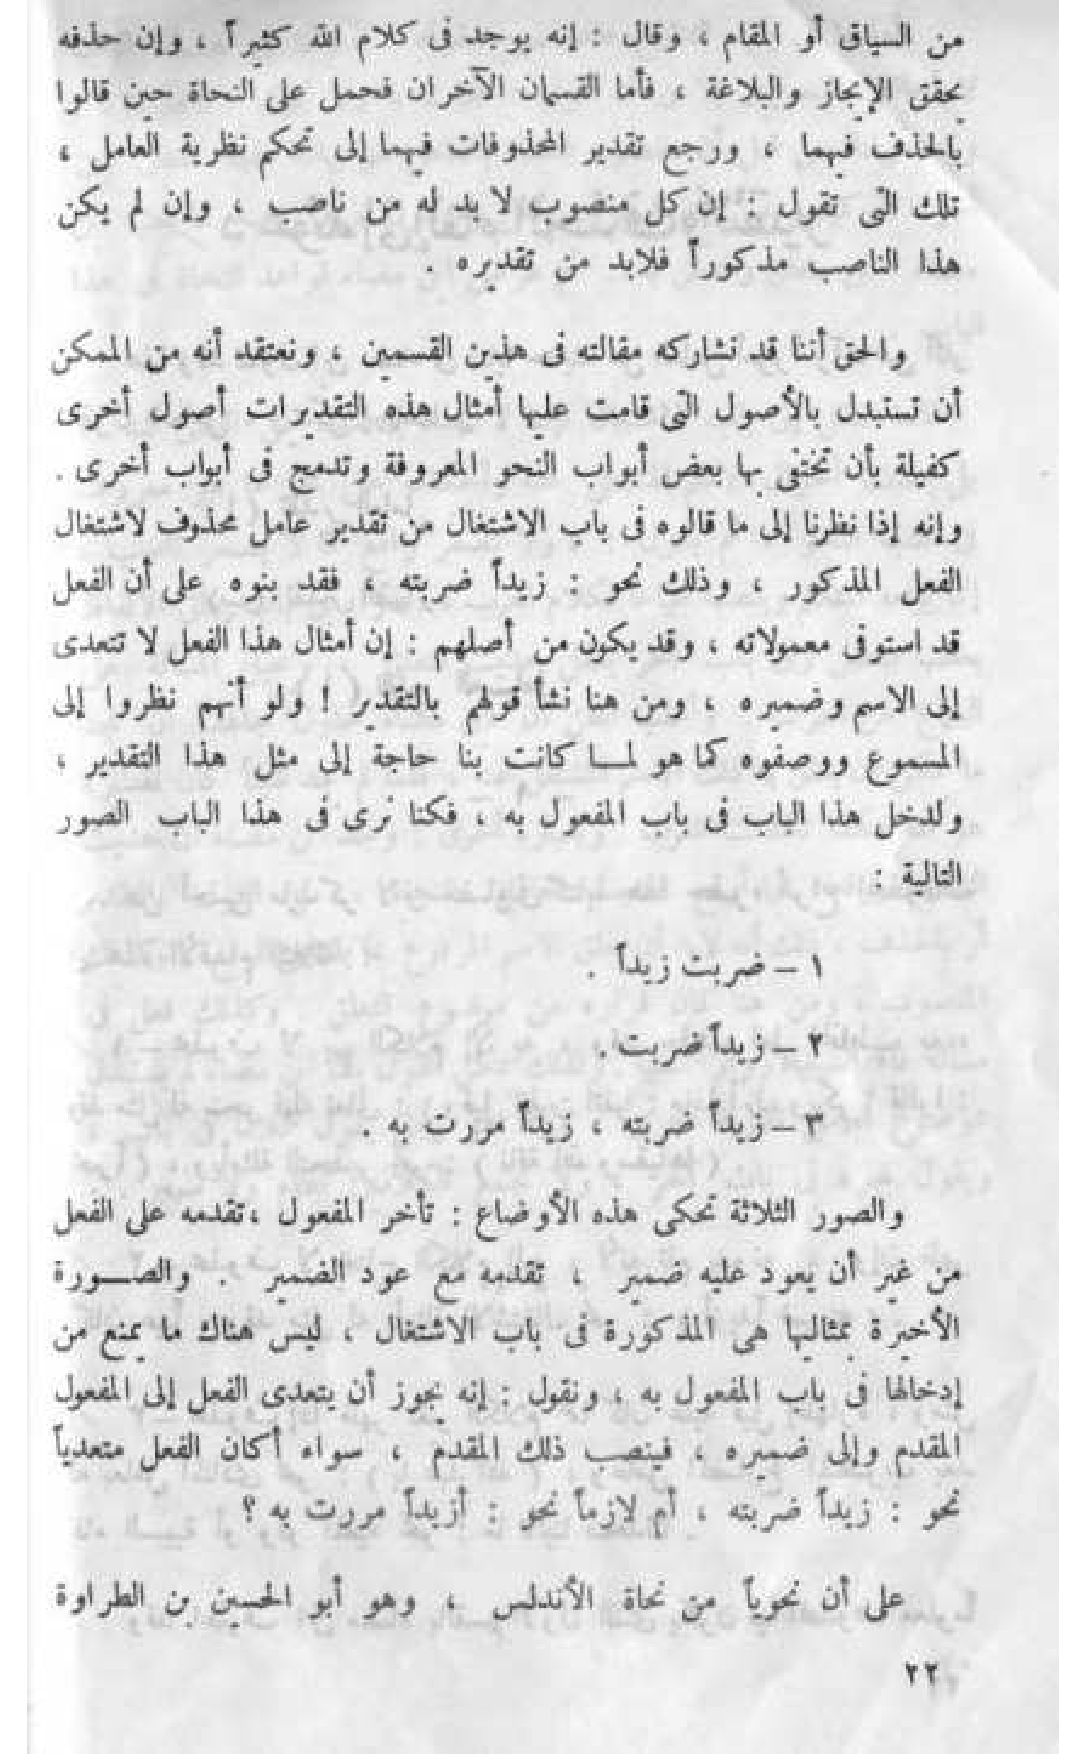 من السياق أو المقام ، وقال : إنه يوجد فى كلام الله كثيراً ، وإن حذفه
يحقق الإيجاز والبلاغة ، فأما القسمان الآخران فحمل على النحاة حين قالوا
بالحذف فيهما ، ورجع تقدير المحذوفات فيهما إلى تحكم نظرية العامل ،
تلك التى تقول : إن كل منصوب لا بد له من ناصب ، وإن لم يكن
هذا الناصب مذكوراً فلابد من تقديره .
والحق أننا قد نشاركه مقالته فى هذين القسمين ، ونعتقد أنه من الممكن
أن تستبدل بالأصول التى قامت عليها أمثال هذه التقديرات أصول أخرى
كفيلة بأن تختفى بها بعض أبواب النحو المعروفة وتدمج فى أبواب أخرى .
وإنه إذا نظرنا إلى ما قالوه فى باب الاشتغال من تقدير عامل محذوف لاشتغال
الفعل المذكور ، وذلك نحو : زيداً ضربته ، فقد بنوه على أن الفعل
قد استوفى معمولاته ، وقد يكون من أصلهم : إن أمثال هذا الفعل لا تتعدى
إلى الاسم وضميره ، ومن هنا نشأ قولهم بالتقدير ! ولو أنهم نظروا إلى
المسموع ووصفوه كما هو لمــا كانت بنا حاجة إلى مثل هذا التقدير ،
ولدخل هذا الباب فى باب المفعول به ، فكنا نرى فى هذا الباب الصور
التالية :
١ – ضربت زيداً .
٢ – زيداً ضربت .
٣ – زيداً ضربته ، زيداً مررت به .
والصور الثلاثة تحكى هذه الأوضاع : تأخر المفعول ، تقدمه على الفعل
من غير أن يعود عليه ضمير ، تقدمه مع عود الضمير . والصــورة
الأخيرة بمثاليها هى المذكورة فى باب الاشتغال ، ليس هناك ما يمنع من
إدخالها فى باب المفعول به ، ونقول : إنه يجوز أن يتعدى الفعل إلى المفعول
المقدم وإلى ضميره ، فينصب ذلك المقدم ، سواء أكان الفعل متعدياً
نحو : زيداً ضربته ، أم لازماً نحو : أزيداً مررت به ؟
على أن نحوياً من نحاة الأندلس ، وهو أبو الحسين بن الطراوة
٢٢